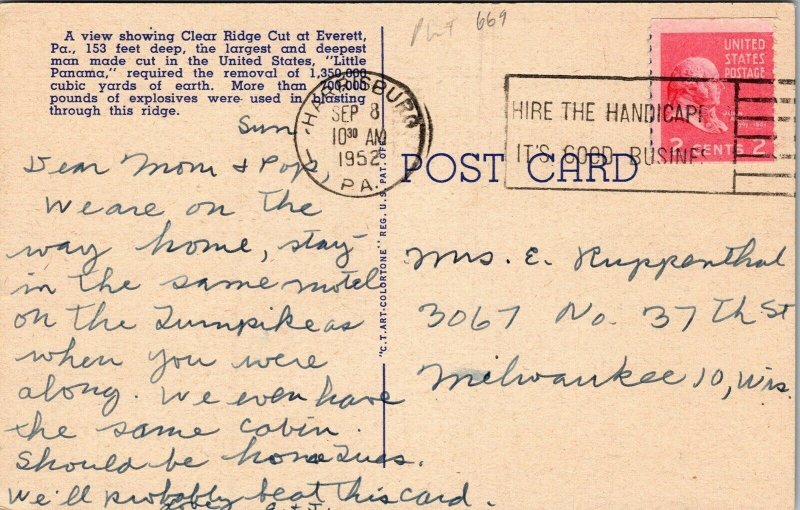 A view showing Clear Ridge Cut at Everett,
Pa., 153 feet deep, the largest and deepest
man made cut in the United States, "Little
Panama," required the removal of 1,350,000
cubic yards of earth. More than 700,000
pounds of explosives were used in blasting
through this ridge.
669
HARRISBURG
SEP 8
10 30 AM
1952
PA.
HIRE THE HANDICAP
IT'S GOOD BUSINES
UNITED
STATES
POSTAGE
2 CENTS 2
POST CARD
"C.T. ART-COLORTONE" REG. U.S. PAT. OFF.
Sun
Dear Mom & Pop,
We are on the
way home, stay-
in the same motel
on the Turnpike as
when you were
along. We even have
the same cabin.
Should be home Tues.
We'll probably beat this card.
Mrs. E. Ruppenthal
3067 No. 37th St
Milwaukee 10, Wis.